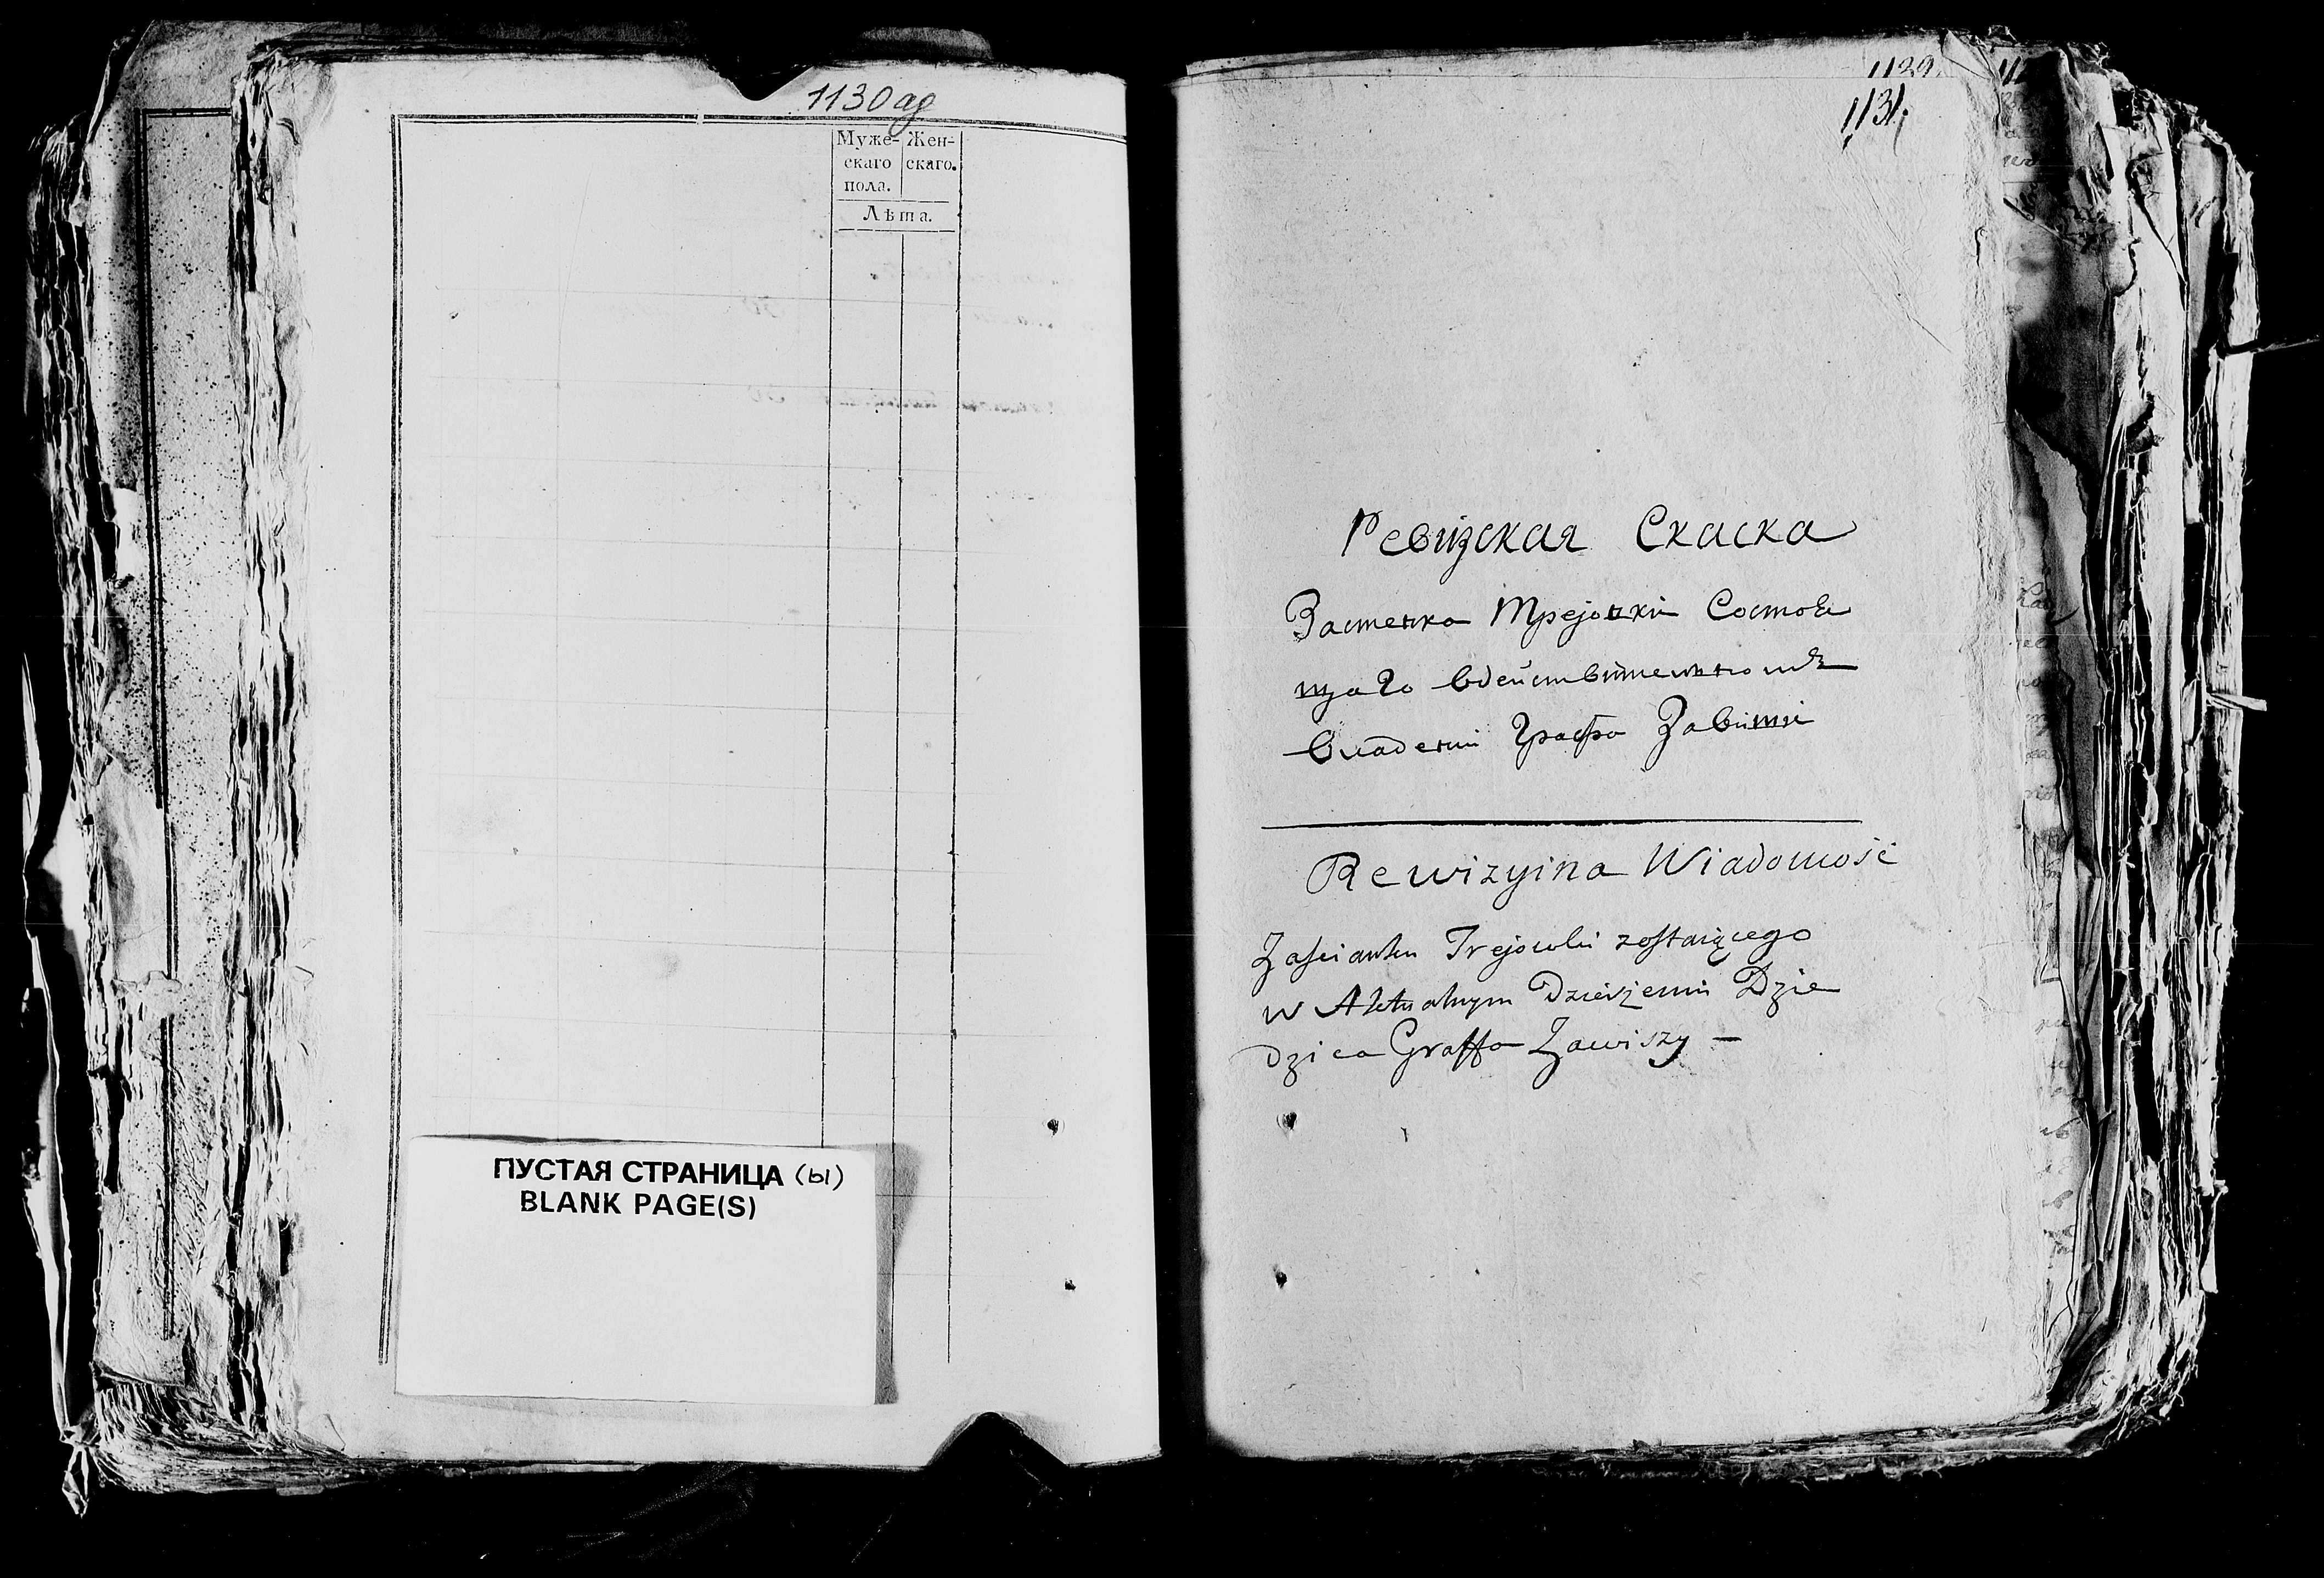 1130 ад
Муже- Жен-
скаго скаго.
пола.
Лѣта.
ПУСТАЯ СТРАНИЦА (ы)
BLANK PAGE(S)
1139.
1131.
Ревизская Скаска
Застенка Трејовки Состоя
щаго вдействительномъ
владении Графа Завиши
Rewizyina Wiadomość
Zaścianku Trejowki zostaiącego
w Aktualnym Dzierżeniu Dzie
dzica Graffa Zawiszy –